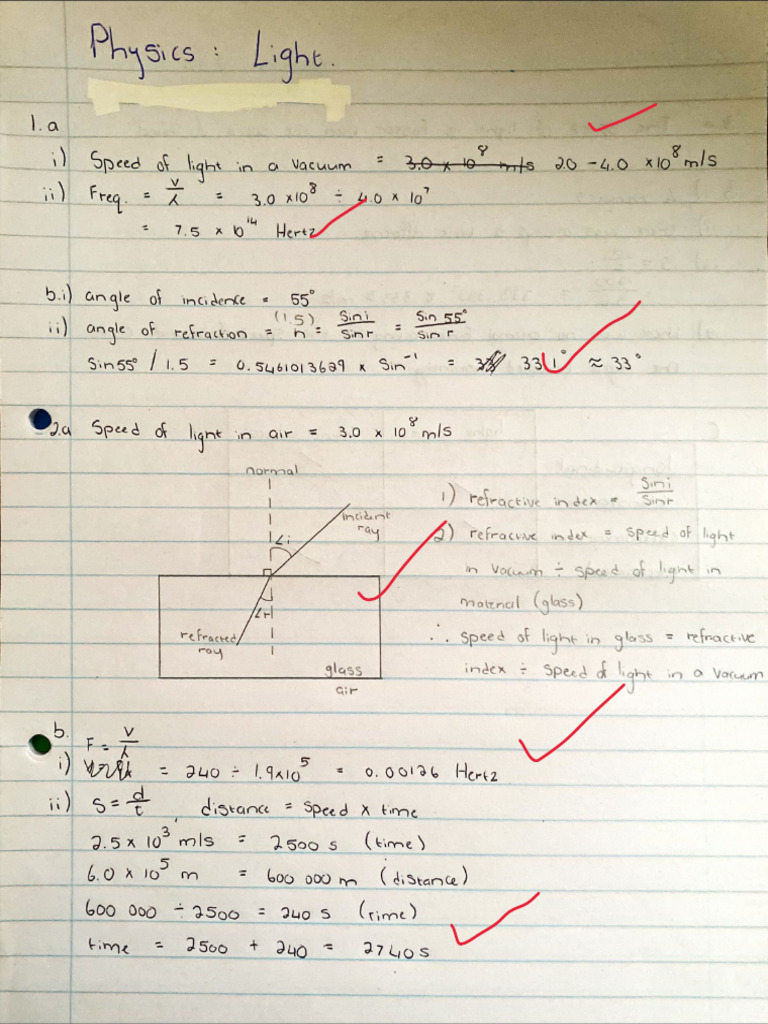 Physics : Light.
1.a
i) Speed of light in a vacuum = 3.0 x 10⁸ m/s 2.0 - 4.0 x10⁸ m/s
ii) Freq. = v/λ = 3.0 x10⁸ ÷ 4.0 x 10⁷
= 7.5 x 10¹⁴ Hertz
b.i) angle of incidence = 55°
ii) angle of refraction = (1.5) n = Sin i/Sin r = Sin 55°/Sin r
Sin55° / 1.5 = 0.5461013629 x Sin⁻¹ = 33.1° ≈ 33°
2.a Speed of light in air = 3.0 x 10⁸ m/s
normal
incident
ray
∠i
∠r
refracted
ray
glass
air
1) refractive index = Sin i/Sin r
2) refractive index = speed of light
in vacuum ÷ speed of light in
material (glass)
∴ speed of light in glass = refractive
index ÷ speed of light in a vacuum
b. F = v/λ
i) = 240 ÷ 1.9x10⁵ = 0.00126 Hertz
ii) S = d/t , distance = speed x time
2.5 x 10³ m/s = 2500 s (time)
6.0 x 10⁵ m = 600 000 m (distance)
600 000 ÷ 2500 = 240 s (time)
time = 2500 + 240 = 2740 s